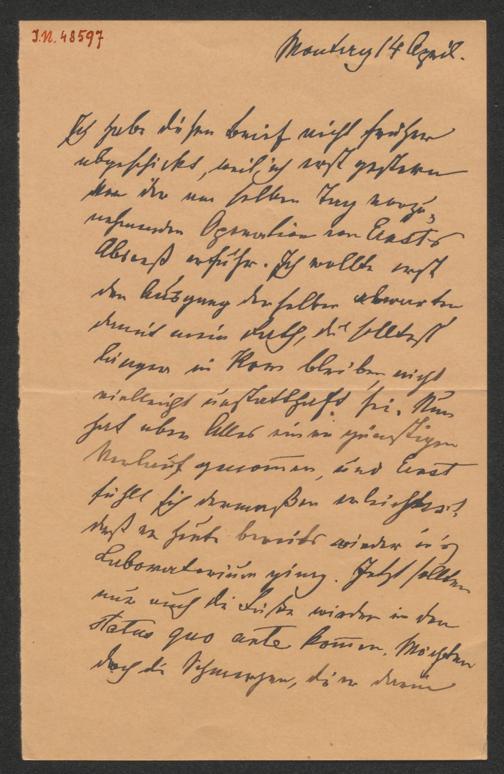 I.N. 48597
Montag 14 April.
Ich habe diesen Brief nicht früher
abgeschickt, weil ich erst gestern
von der am selben Tag vorzu-
nehmenden Operation von Ernst's
Absceß erfuhr. Ich wollte erst
den Ausgang derselben abwarten
damit mein Rath, du solltest
länger in Rom bleiben nicht
vielleicht unstatthaft sei. Nun
hat aber Alles einen günstigen
Verlauf genommen, und Ernst
fühlt sich dermaßen erleichtert,
daß er heute bereits wieder in's
Laboratorium ging. Jetzt sollten
nur auch die Füße wieder in den
status quo ante kommen. Möchten
doch die Schmerzen, die er darin